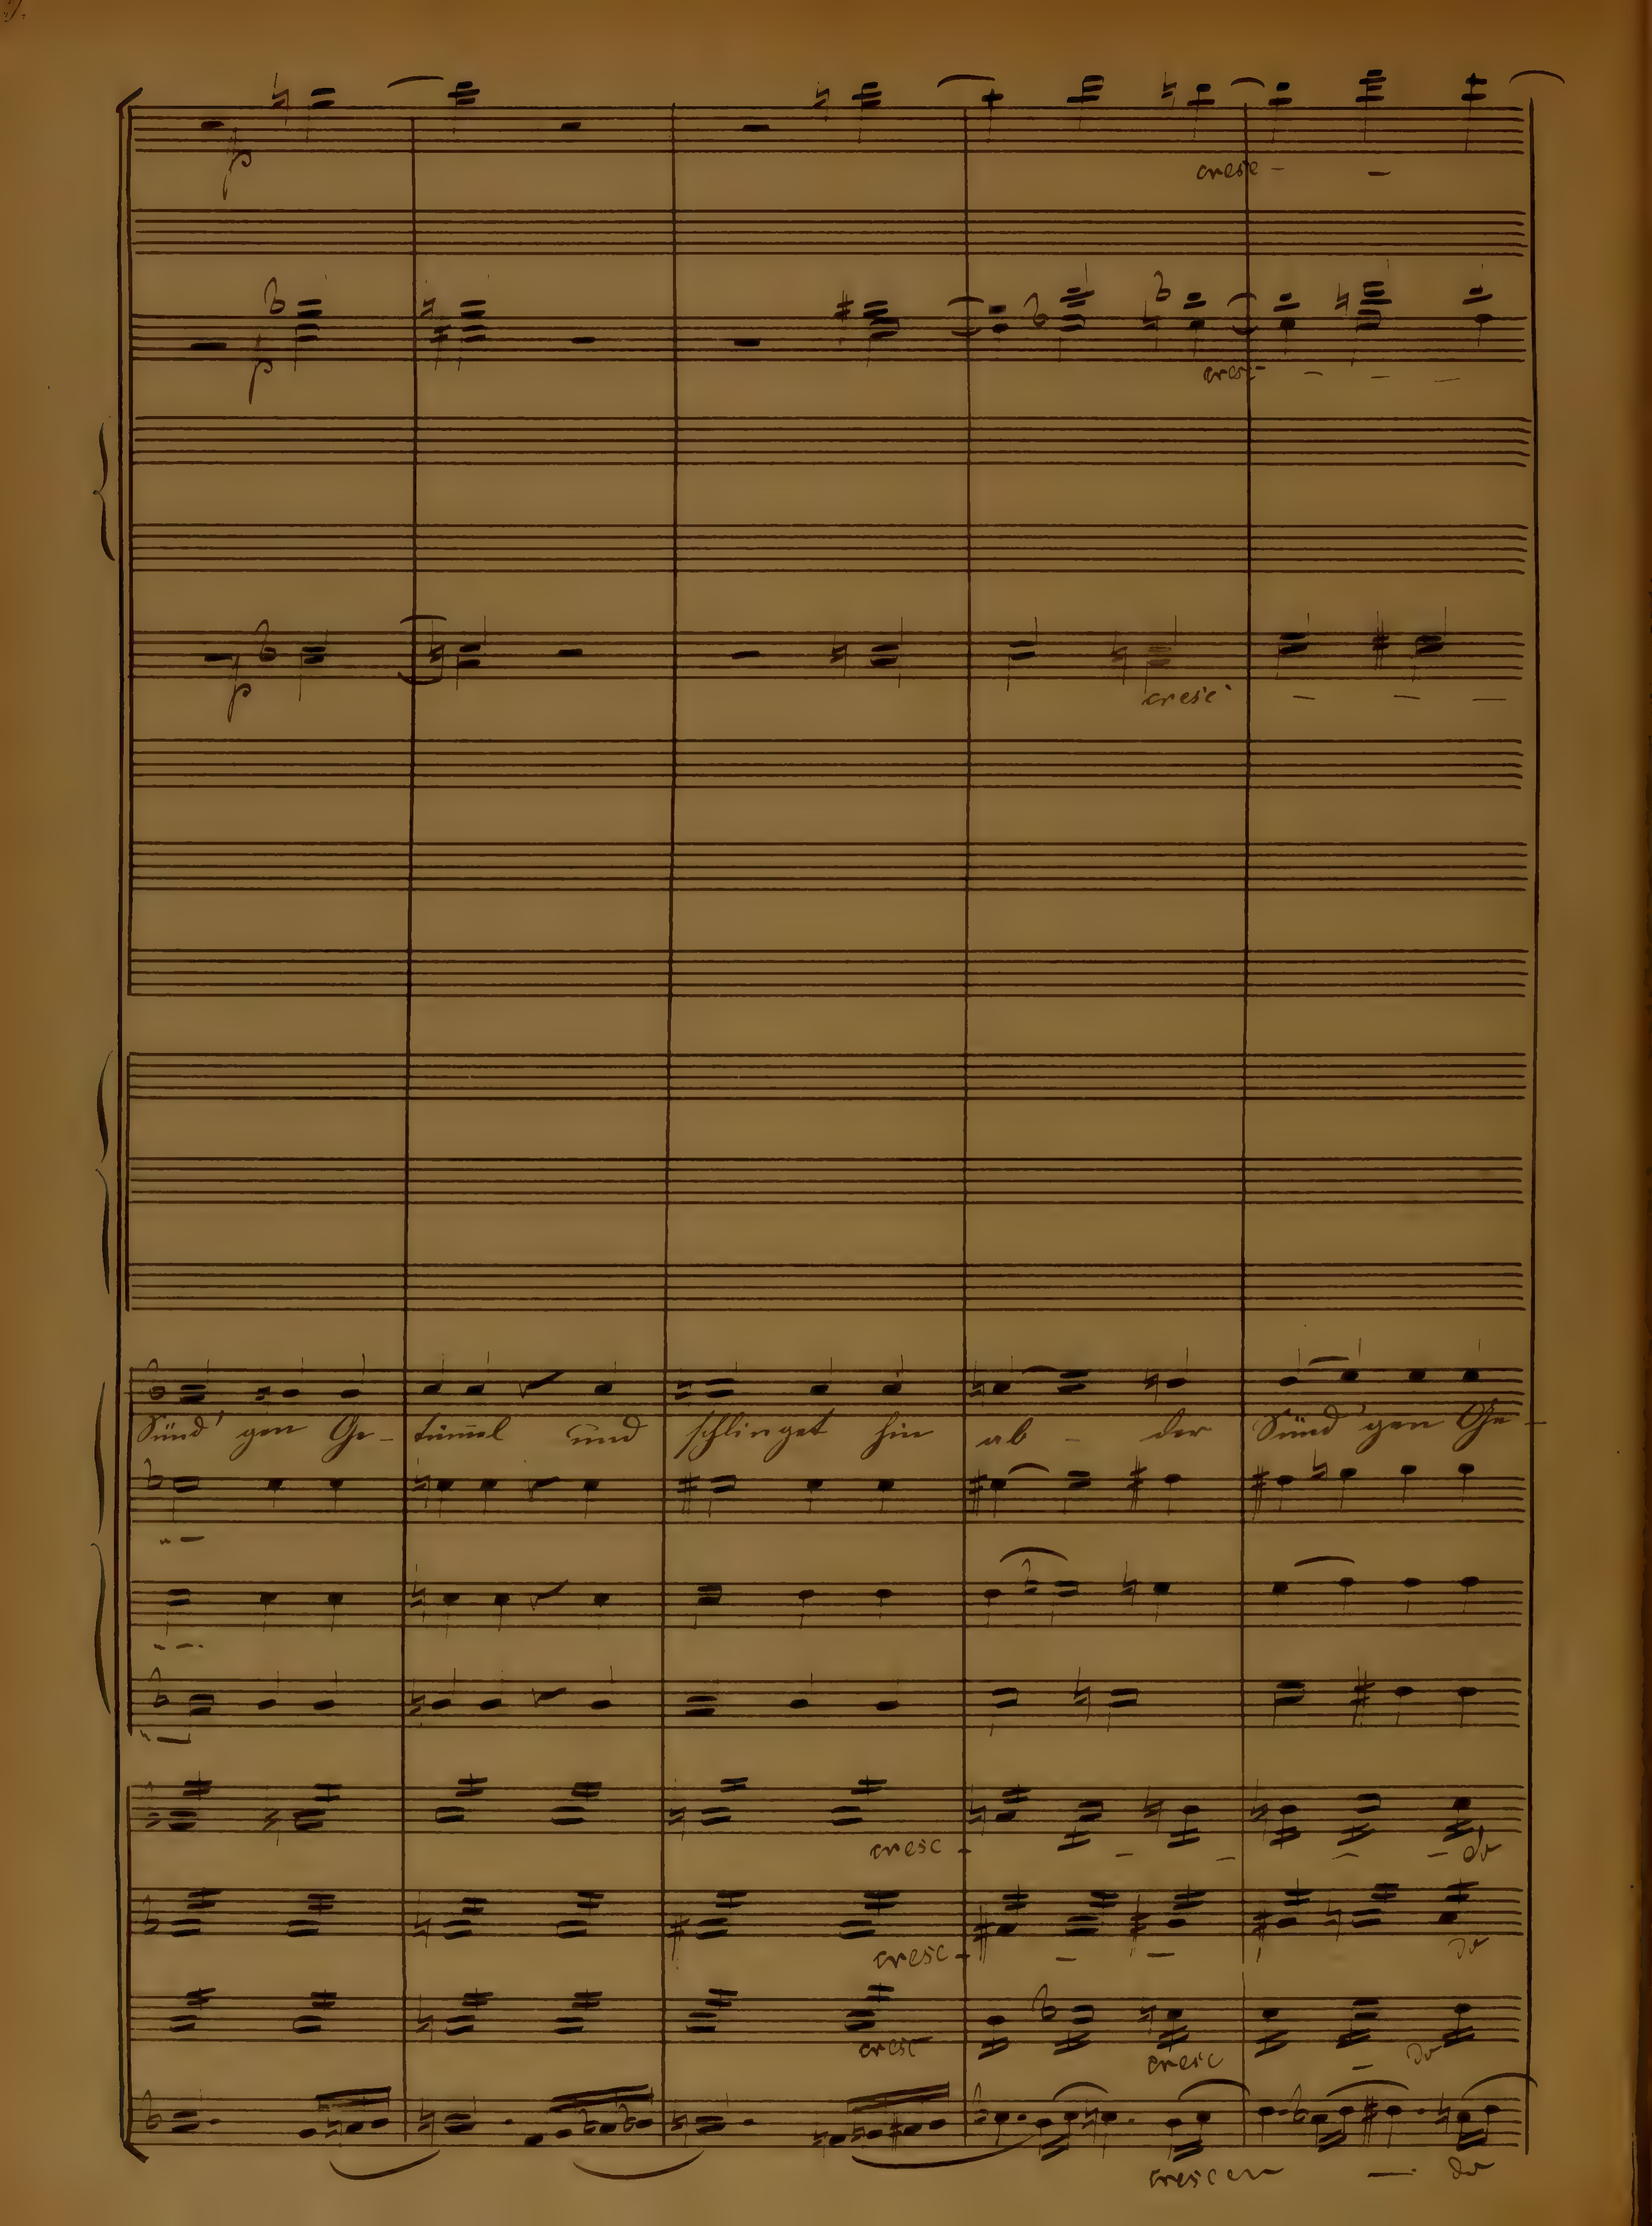 p
cresc - -
p
cresc - - - -
p
cresc - - -
Sünd' gen Ge - tüm̅el und schlinget hin ab - der Sünd' gen Ge -
cresc - - - - - do
cresc - - - do
cresc cresc - do
crescen - do